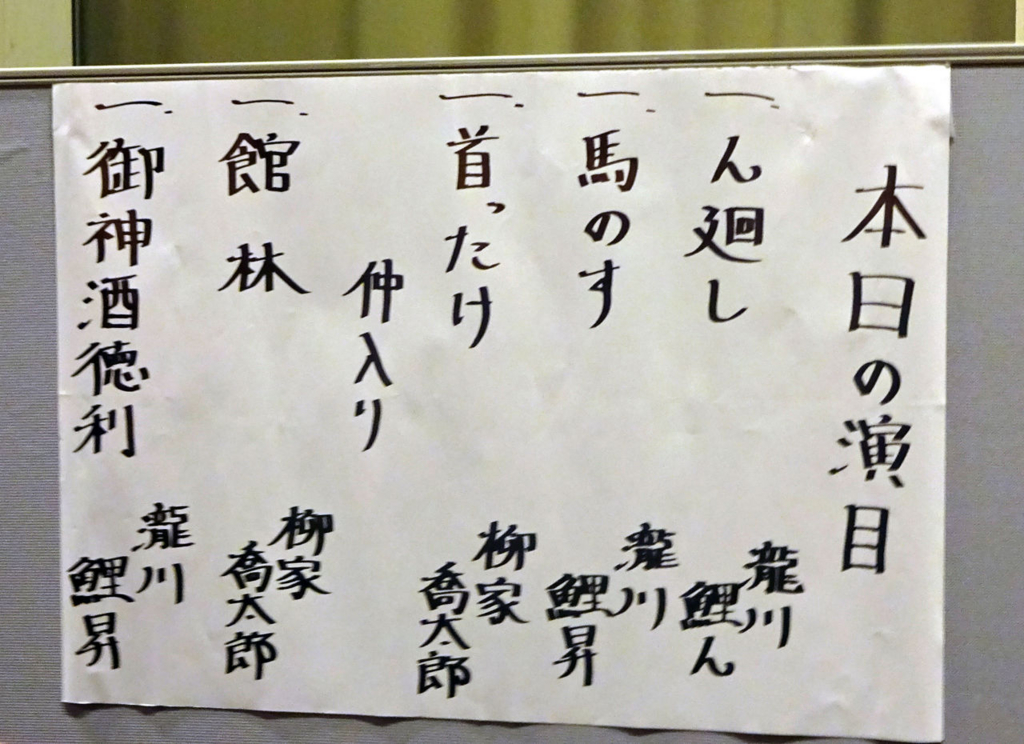 本日の演目
一.ん廻し
瀧川
鯉ん
一.馬のす
瀧川
鯉昇
一.首ったけ
柳家
喬太郎
仲入り
一.館林
柳家
喬太郎
一.御神酒徳利
瀧川
鯉昇